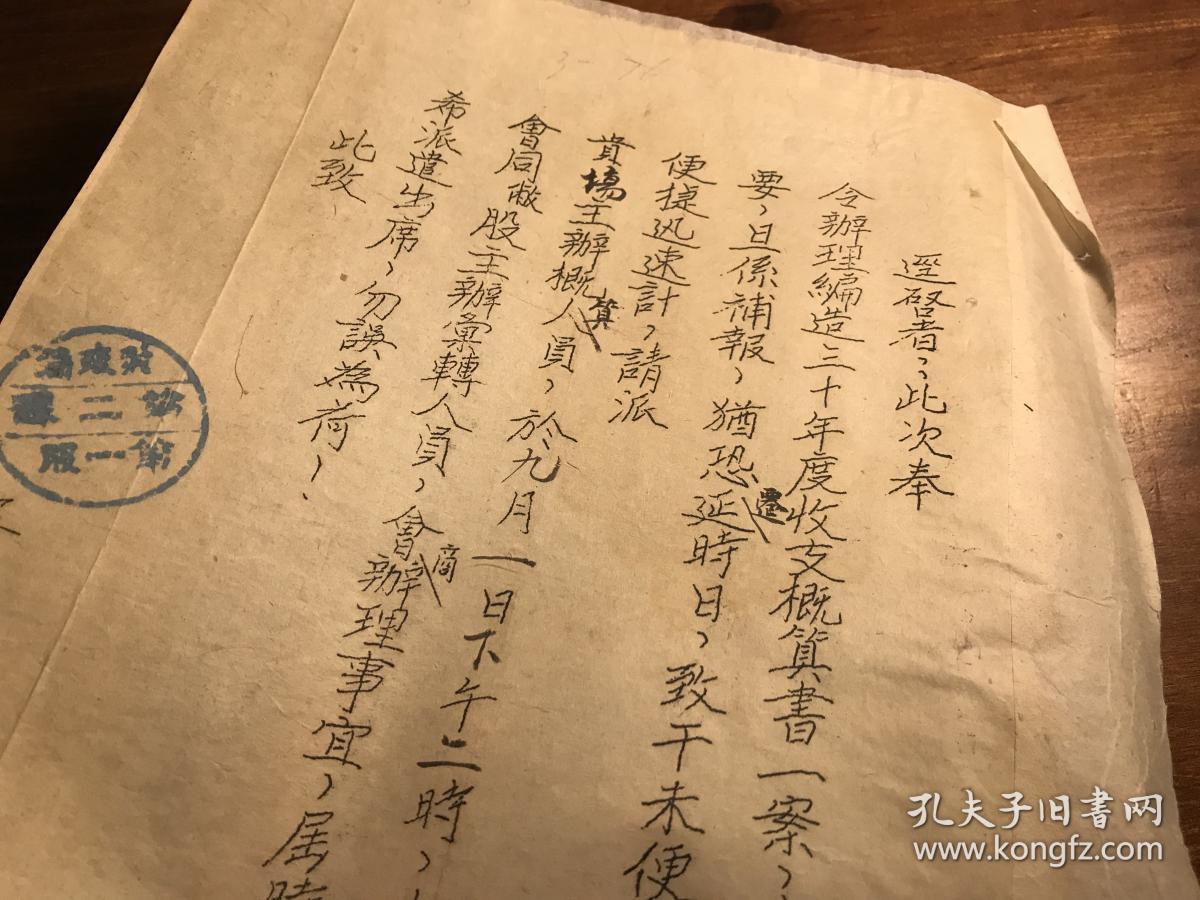 逕啓者、此次奉
令辦理編造三十年度收支概算書一案、
要、且係補報、猶恐遷延時日、致干未便
便捷迅速計、請派
貴場主辦概算人員、於九月一日下午二時、
會同敝股主辦彙轉人員、會商辦理事宜、屆時
希派遣出席、勿誤為荷！
此致
第一股
孔夫子旧书网
www.kongfz.com